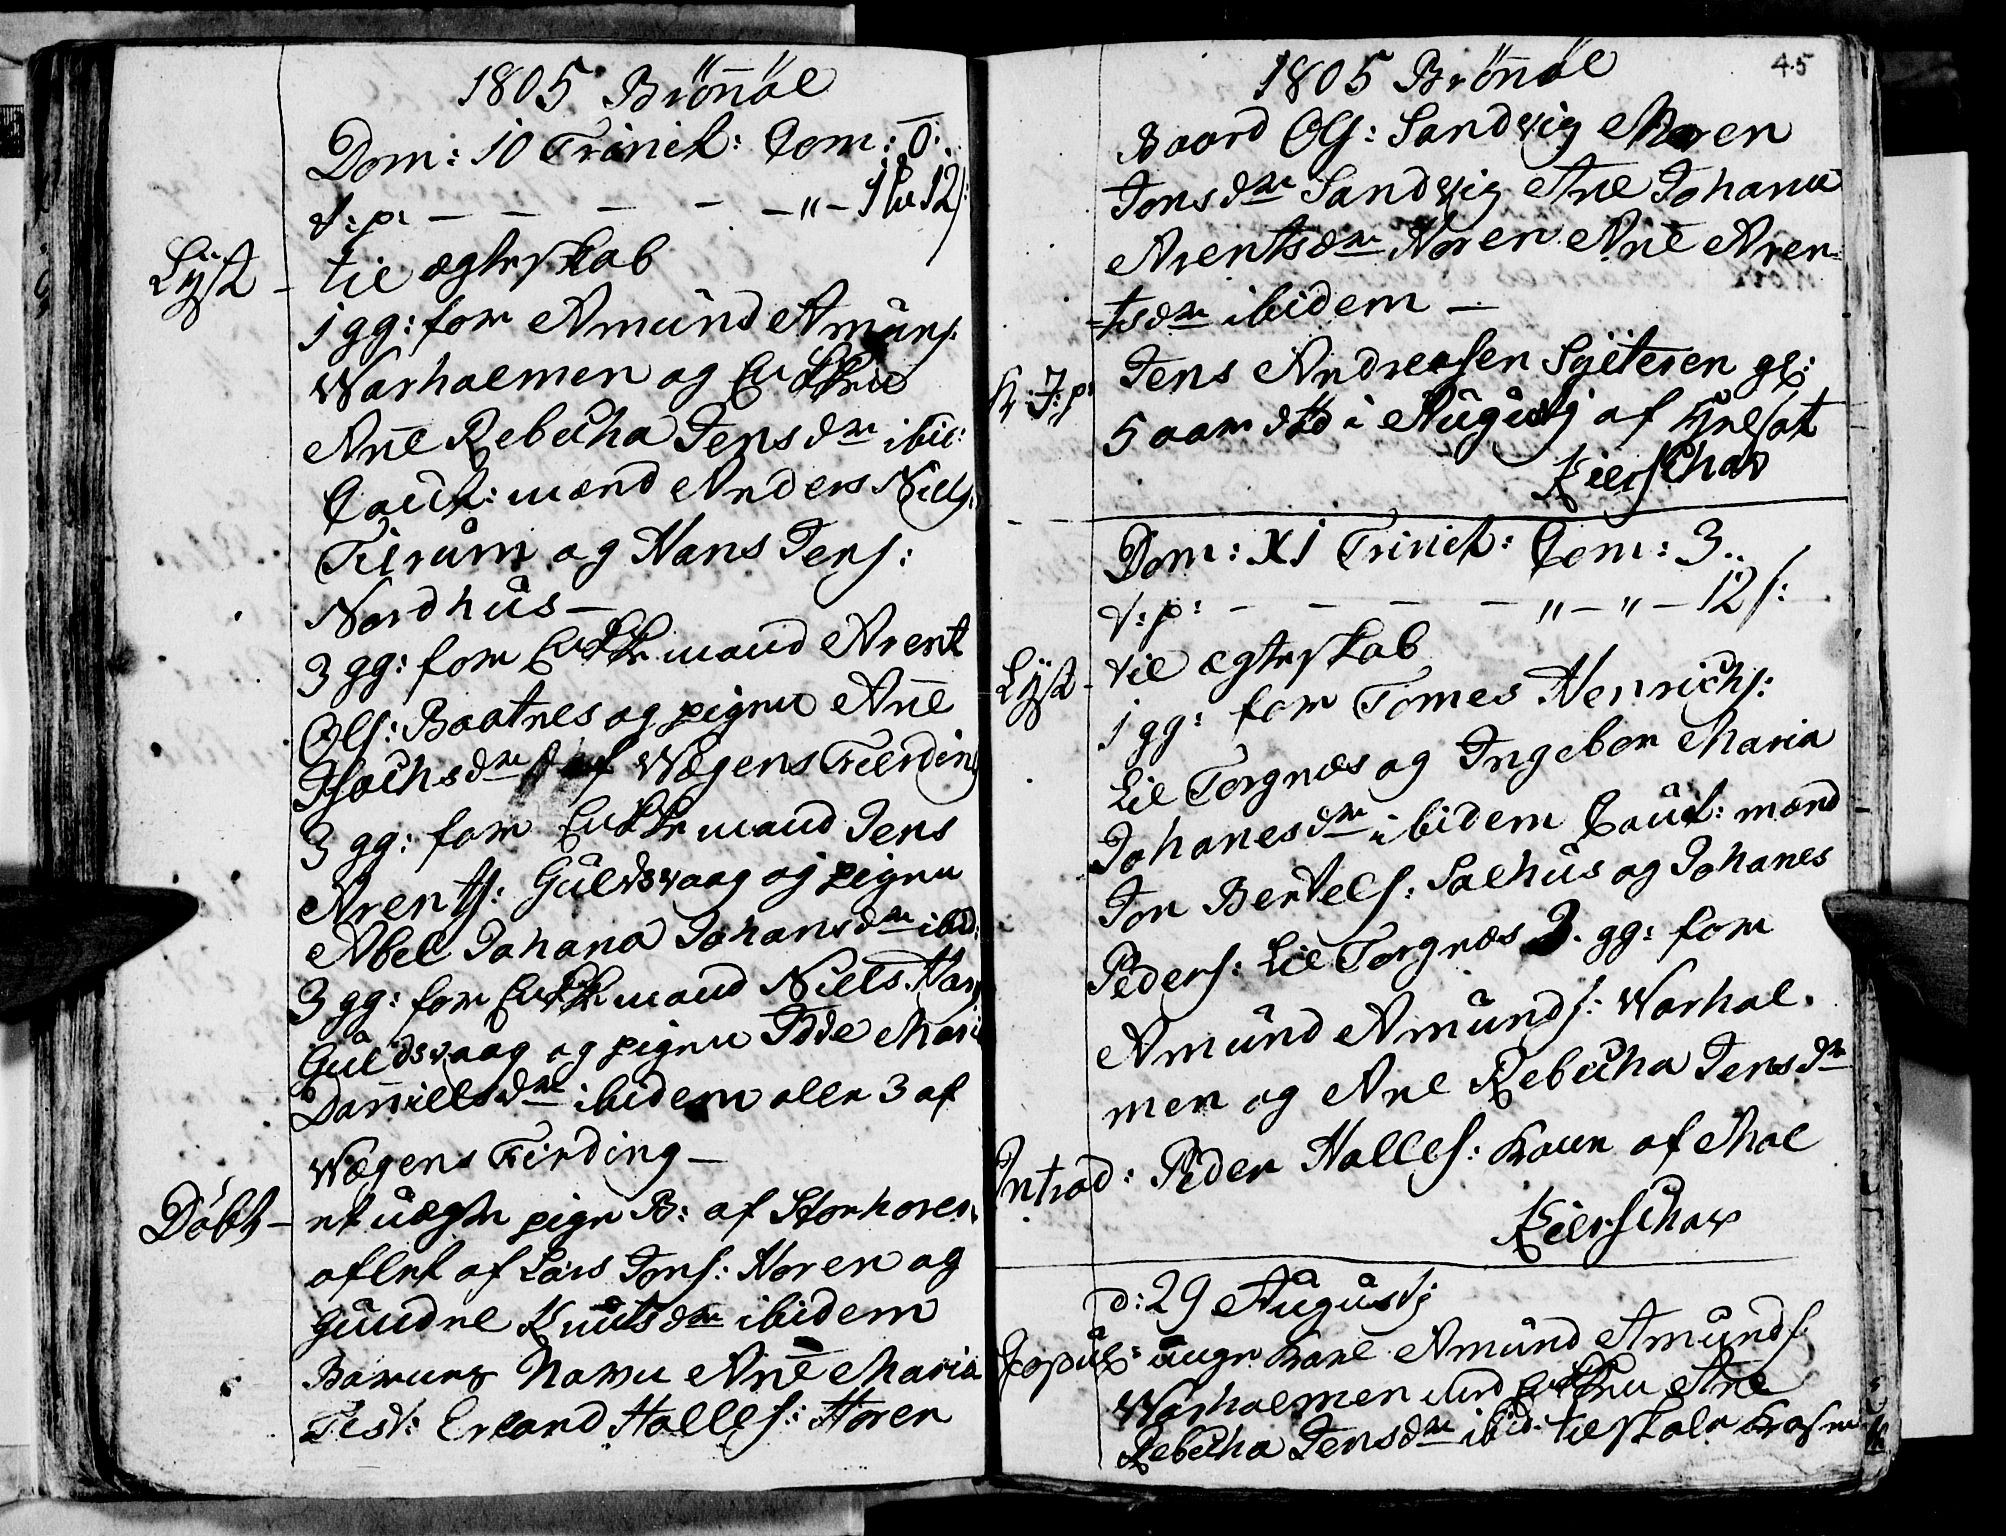 1805 Brönöe
Dom: 10 Trinit: Com: 0.
t: p: — — — — — " — 1 12 s:
Lÿst — til ægteskab
1 gg: for Amund Amunds:
Warholmen og Enken
Ane Rebecha Jensdr ibid:
Caut: mænd Anders Niels:
Tilrum og Hans Jens:
Nordhus —
3 gg: for Enkemand Arent
Ols: Baatnes og pigen Ane
Isachsdr af Wegens Fierding
3 gg: for Enkemand Jens
Arents: Guldsvaag og pigen
Abel Johana Johansdr ibid:
3 gg: for Enkemand Niels Hans
Guldsvaag og pigen Idde Maria
Daniellsdr ibidem alle 3 af
Wegens Fierding —
Döbt — et uægte pige B: af Storhoren
aflet af Lars Jons: Horen og
Knutsdr ibidem
Barnets Navn Ane Maria
Test: Erland Halles: Horen
45
1805 Brönöe
Baard Ols: Sandvig Maren
Jonsdr Sandvig Ane Johana
Arentsdr Horen Ane Aren-
-tsdr ibidem —
Jens Andreasen gl:
5 aar död i Augustj af
Kierschow
Dom: XI Trinit: Com: 3..
t: p: — — — — " — " — 12 s:
Lÿst — til ægteskab
1 gg: for Tomes Henrichs:
Lil Torgnes og Ingebor Maria
Johanesdr ibidem Caut: mænd
Jon Bertels: Salhus og Johanes
Peders: Lil Torgnes 3. gg: for
Amund Amunds: Warhol-
men og Ane Rebecha Jensdr
Introd: Peder Halles: kone af Moe
Kierschow
d: 29 Augustj
Copul: unge karl Amund Amunds
Warholmen med Enken Ane
Rebecha Jensdr ibid: